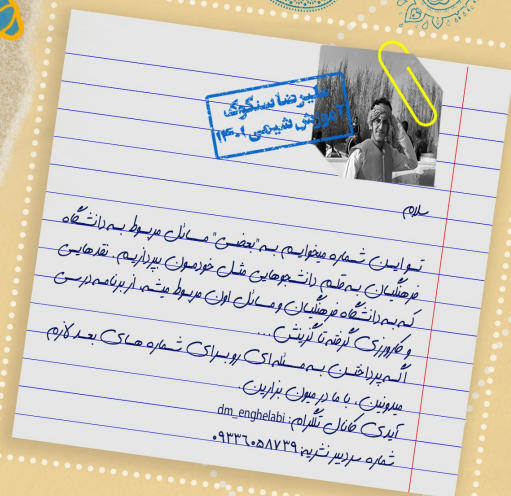 علیرضا سنگوک
آموزش شیمی ۱۴۰۱
سلام
تو این شماره میخوایم به "بعضی" مسائل مربوط به دانشگاه
فرهنگیان به قلم دانشجوهایی مثل خودمون بپردازیم. نقدهایی
که به دانشگاه فرهنگیان و مسائل اون مربوط میشه، از برنامه درسی
و کارورزی گرفته تا گزینش ...
اگه پرداختن به مسئله‌ای رو برای شماره های بعد لازم
میدونین، با ما در میون بزارین.
آیدی کانال تلگرام: dm_enghelabi
شماره سردبیر نشریه: ۰۹۳۳۶۰۵۸۷۳۹